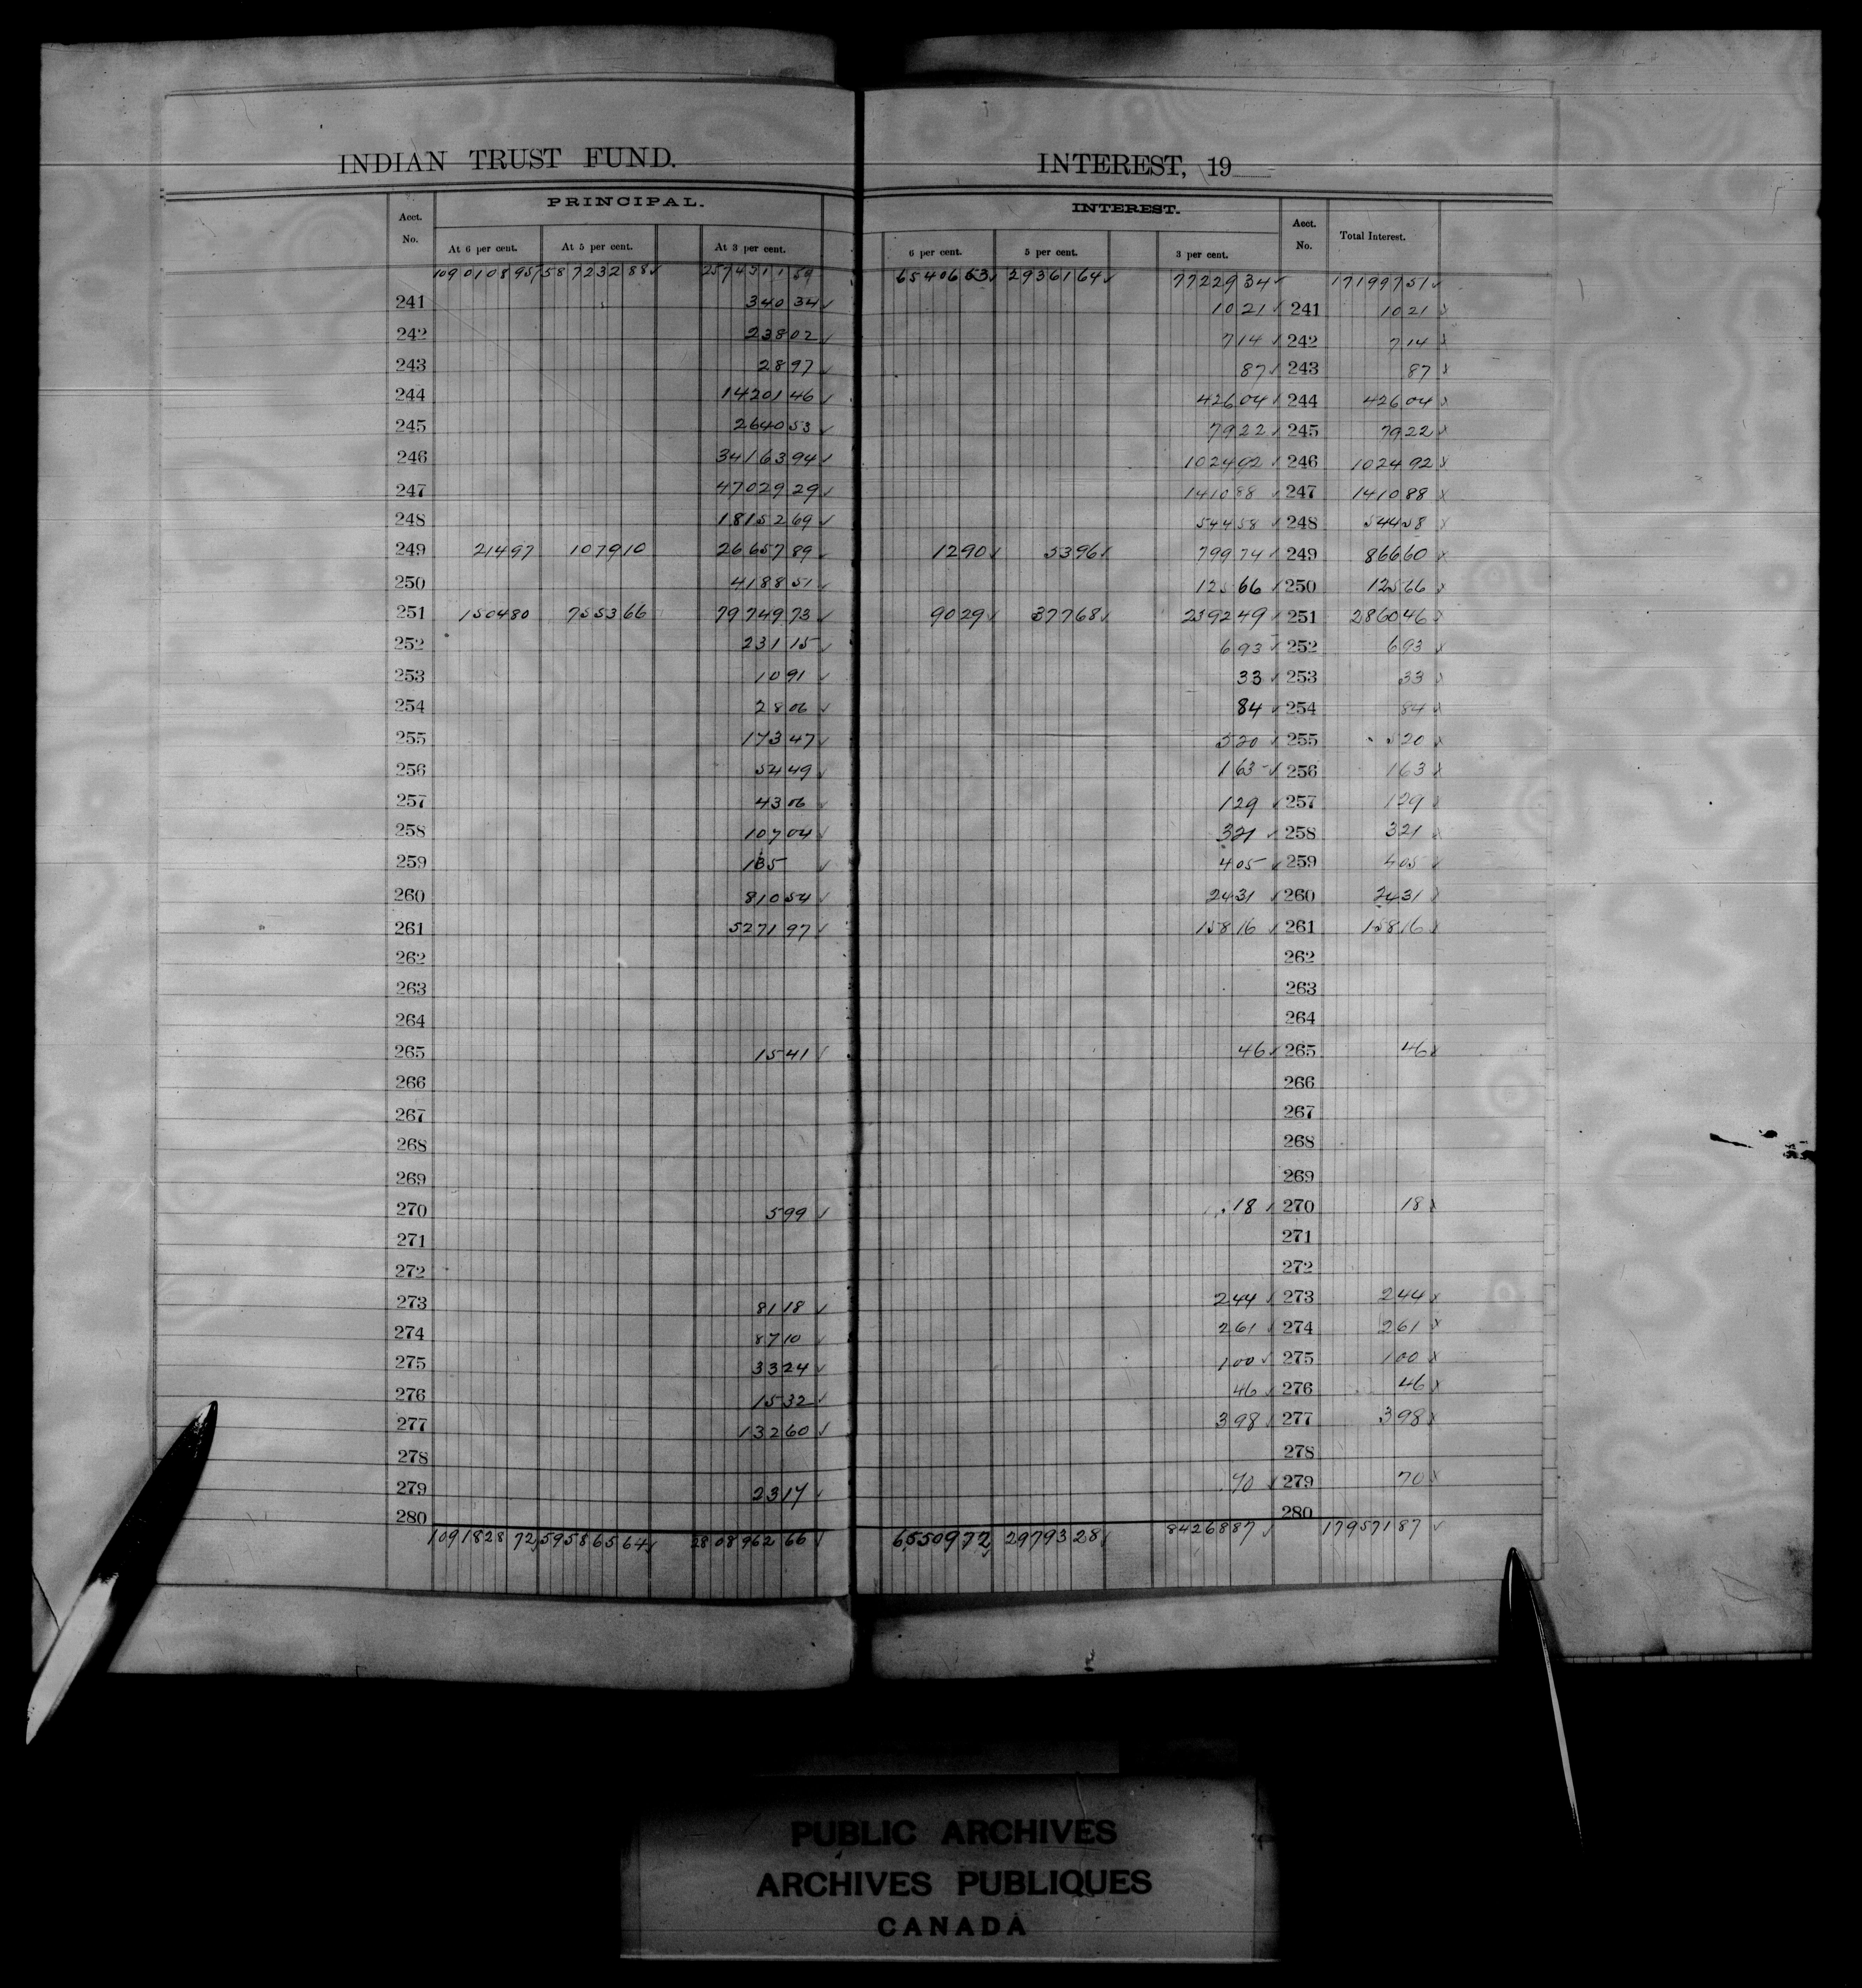 INDIAN TRUST FUND. INTEREST, 19
PRINCIPAL. INTEREST.
Acct. No. At 6 per cent. At 5 per cent. At 3 per cent. 6 per cent. 5 per cent. 3 per cent. Acct. No. Total Interest.
1090108 95 587232 88 2574311 59 65406 53 29361 64 77229 34 171997 51
241 340 34 10 21 241 10 21
242 238 02 7 14 242 7 14
243 28 97 87 243 87
244 14201 46 426 04 244 426 04
245 2640 53 79 22 245 79 22
246 34163 94 1024 92 246 1024 92
247 47029 29 1410 88 247 1410 88
248 18152 69 544 58 248 544 58
249 214 97 1079 10 26657 89 12 90 53 96 799 74 249 866 60
250 4188 51 125 66 250 125 66
251 1504 80 7553 66 79749 73 90 29 377 68 2392 49 251 2860 46
252 231 15 6 93 252 6 93
253 10 91 33 253 33
254 28 06 84 254 84
255 173 47 5 20 255 5 20
256 54 49 1 63 256 1 63
257 43 06 1 29 257 1 29
258 107 04 3 21 258 3 21
259 135 4 05 259 4 05
260 810 54 24 31 260 24 31
261 5271 97 158 16 261 158 16
262 262
263 263
264 264
265 15 41 46 265 46
266 266
267 267
268 268
269 269
270 5 99 18 270 18
271 271
272 272
273 81 18 2 44 273 2 44
274 87 10 2 61 274 2 61
275 33 24 1 00 275 1 00
276 15 32 46 276 46
277 132 60 3 98 277 3 98
278 278
279 23 17 70 279 70
280 280
1091828 72 595865 64 2808962 66 65509 72 29793 28 84268 87 179571 87
PUBLIC ARCHIVES
ARCHIVES PUBLIQUES
CANADA